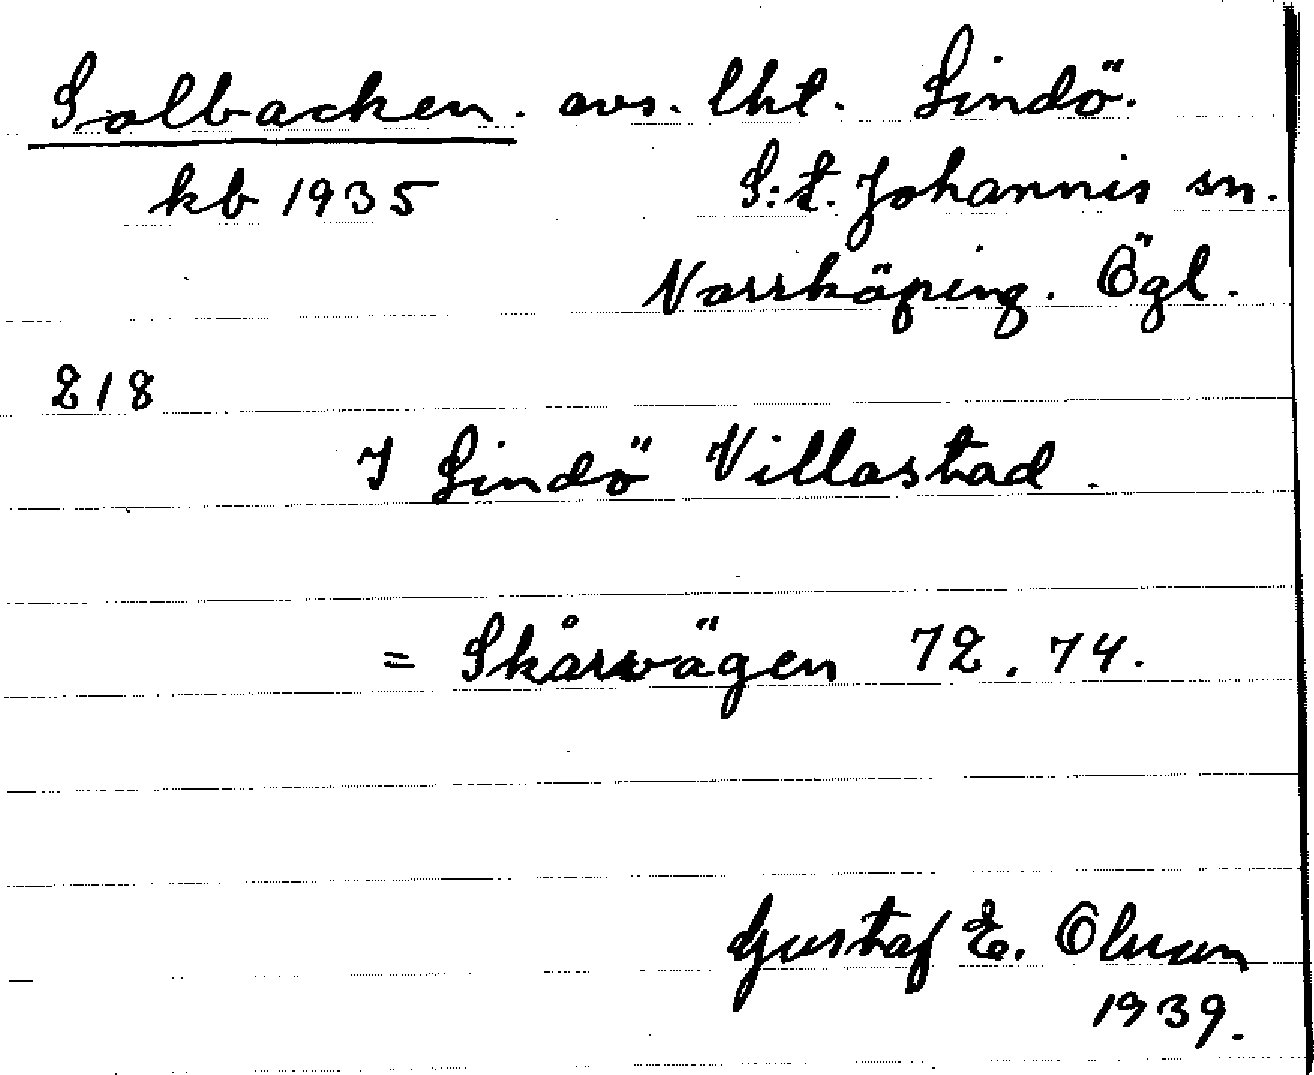 Solbacken. avs. lht. Lindö.
kb 1935 S:t. Johannis sn.
Norrköping. Ögl.
218
I Lindö Villastad.
= Skårvägen 72. 74.
Gustaf E. Olsson
1939.